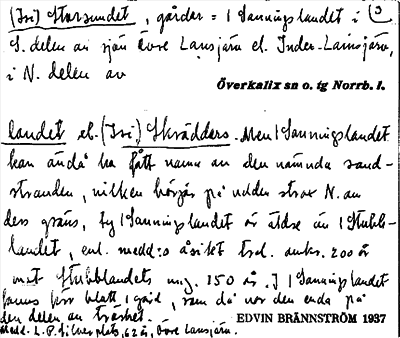 (Isi) Storsundet, gårdar = 1 Sanningslandet i (3
S. delen av sjön Övre Lansjärv el. Inder-Lansjärv,
i N. delen av
Överkalix sn o. tg Norrb. l.
landet el. (Isi) Skrädders. Men 1 Sanningslandet
kan ändå ha fått namn av den nämnda sand-
stranden, vilken börjar på udden strax N. av
dess gräns, ty 1 Sanningslandet är äldre än 1 Stubb-
landet, enl. medd:s åsikt trol. omkr. 200 år
mot Stubblandets ung. 150 år. I 1 Sanningslandet
fanns förr blott 1 gård, som då var den enda på
den delen av trakten.
EDVIN BRÄNNSTRÖM 1937
Medd. L. P. Silverplats, 62 år, Övre Lansjärv.